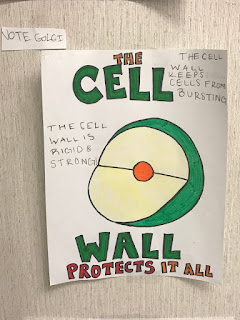 VOTE GOLGI
THE
CELL
THE CELL
WALL
KEEPS
CELLS FROM
BURSTING
THE CELL
WALL IS
RIGID &
STRONG!
WALL
PROTECTS IT ALL